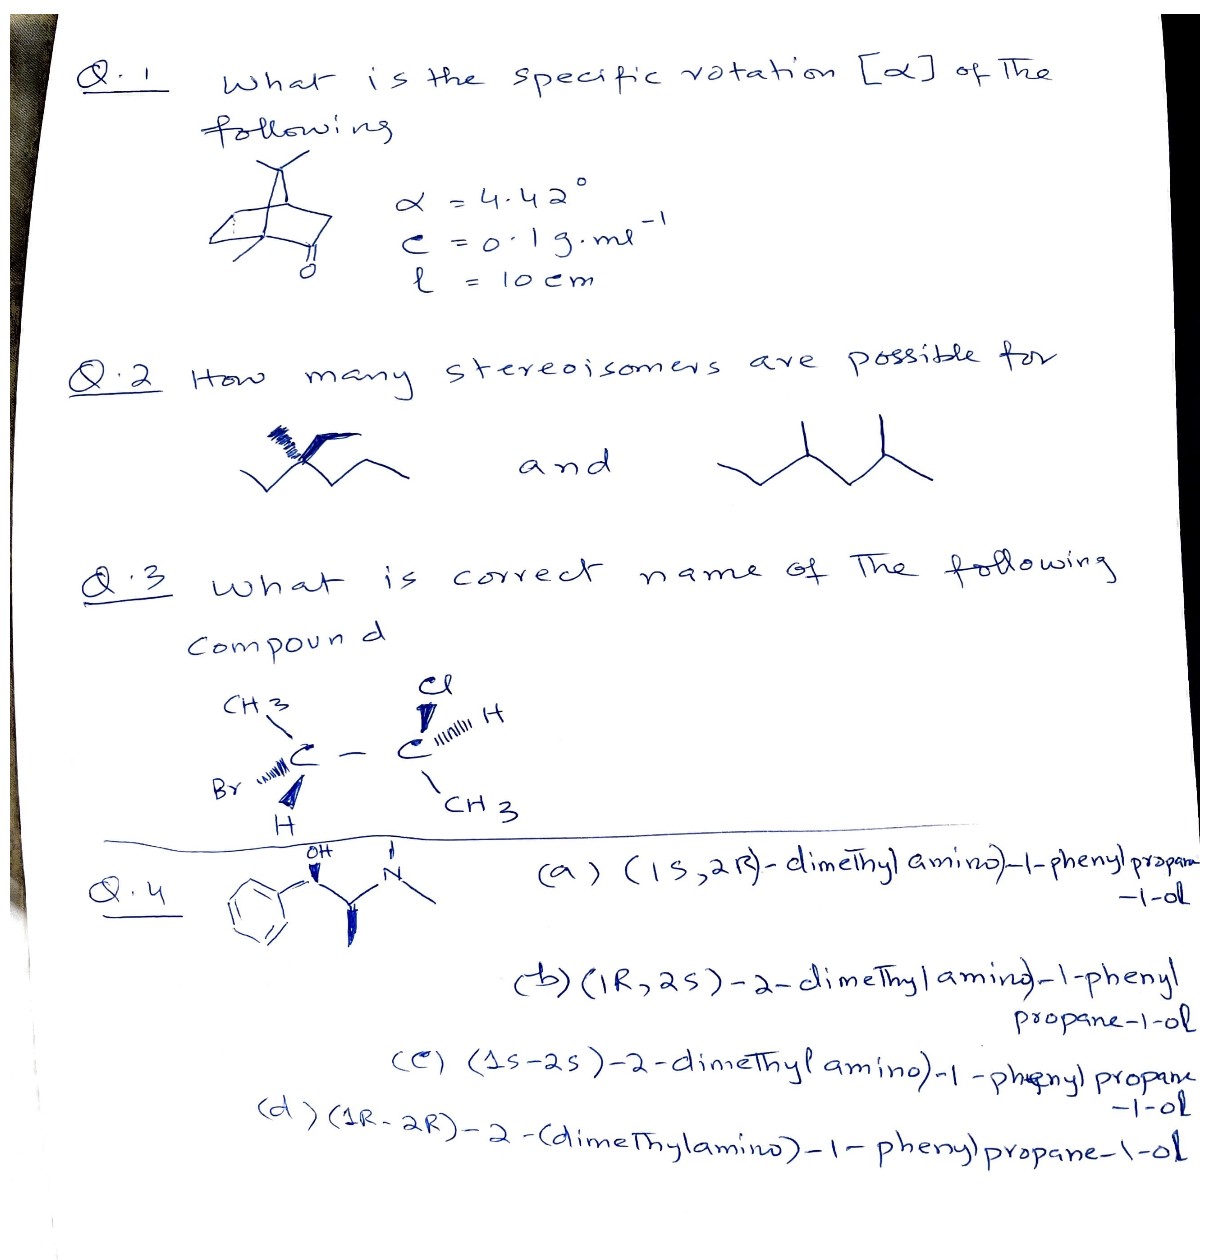 Q.1 What is the specific rotation [α] of The
following
α = 4.42°
c = 0.1 g.ml⁻¹
O
l = 10 cm
Q.2 How many stereoisomers are possible for
and
Q.3 What is correct name of The following
Compound
CH3 Cl
H
C – C
Br
H CH3
Q.4 OH
N
(a) (1S,2R)-dimethyl amino)-1-phenyl propane
-1-ol
(b) (1R,2S)-2-dimethylamino)-1-phenyl
propane-1-ol
(c) (1S-2S)-2-dimethyl amino)-1-phenyl propane
-1-ol
(d) (1R-2R)-2-(dimethylamino)-1-phenyl propane-1-ol